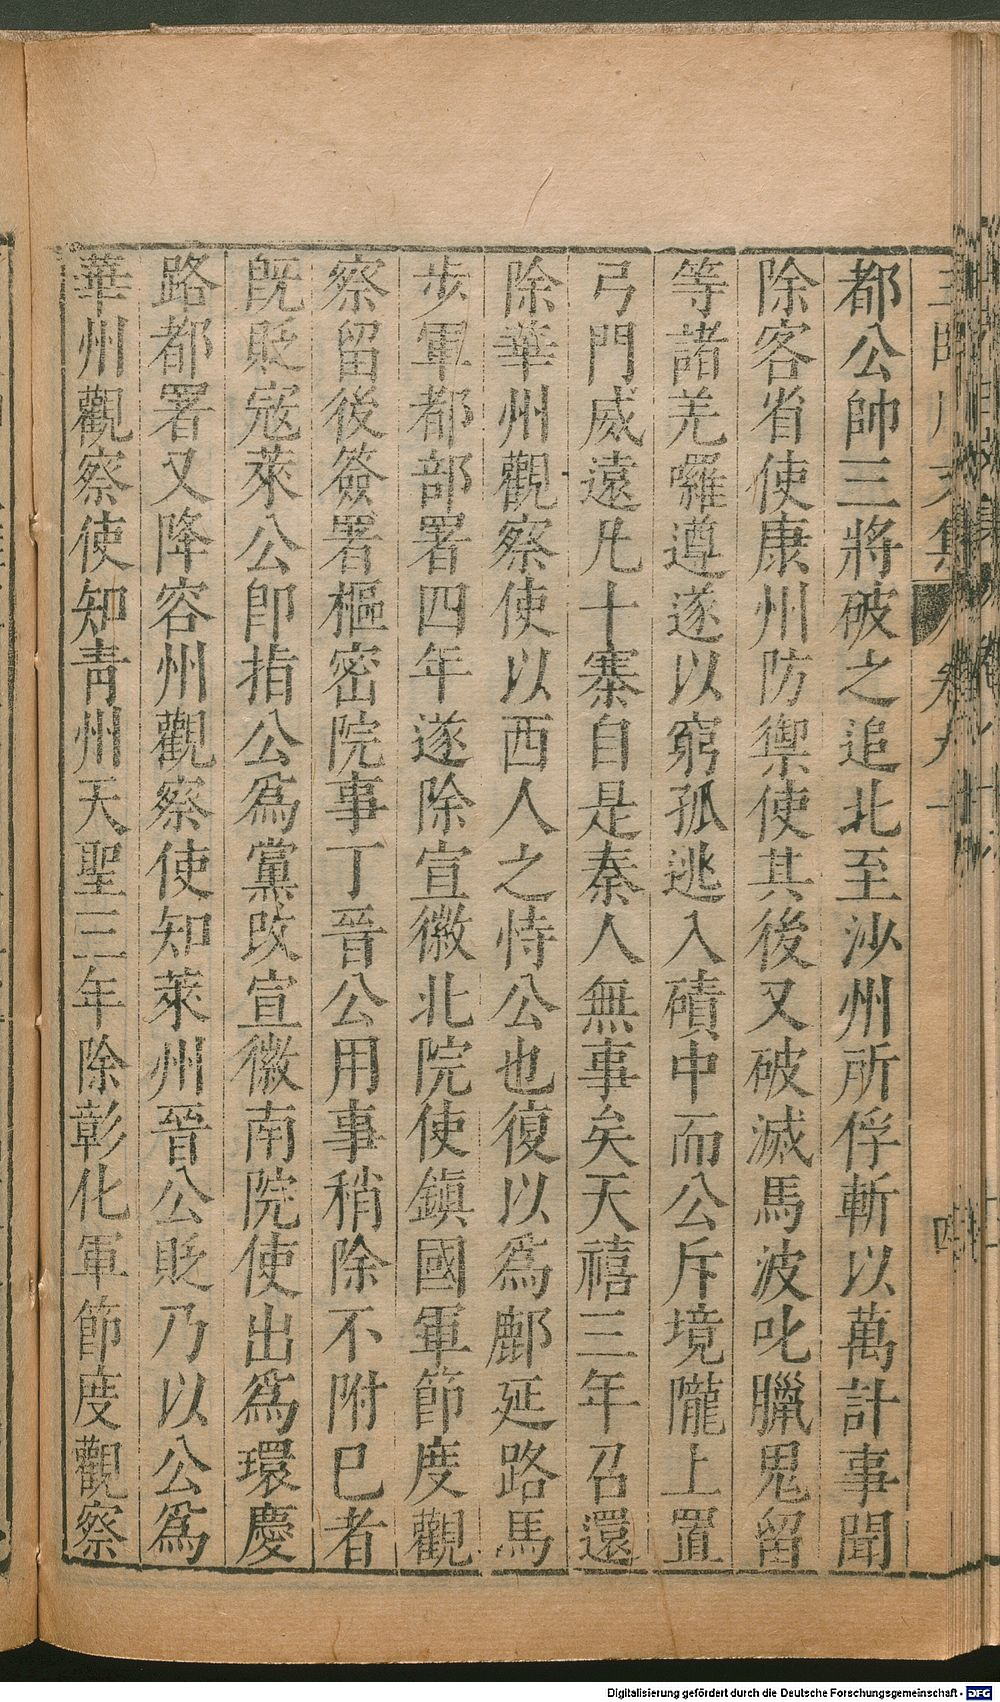 都公帥三將破之追北至沙州所俘斬以萬計事聞
除客省使康州防禦使其後又破滅馬波叱臘鬼留
等諸羌囉遵遂以窮孤逃入磧中而公斥境隴上置
弓門威遠凡十寨自是秦人無事矣天禧三年召還
除華州觀察使以西人之恃公也復以爲鄜延路馬
步軍都部署四年遂除宣徽北院使鎮國軍節度觀
察留後簽署樞密院事丁晉公用事稍除不附巳者
旣貶寇萊公卽指公爲黨改宣徽南院使出爲環慶
路都署又降容州觀察使知萊州晉公貶乃以公爲
華州觀察使知靑州天聖三年除彰化軍節度觀察
Digitalisierung gefördert durch die Deutsche Forschungsgemeinschaft - DFG